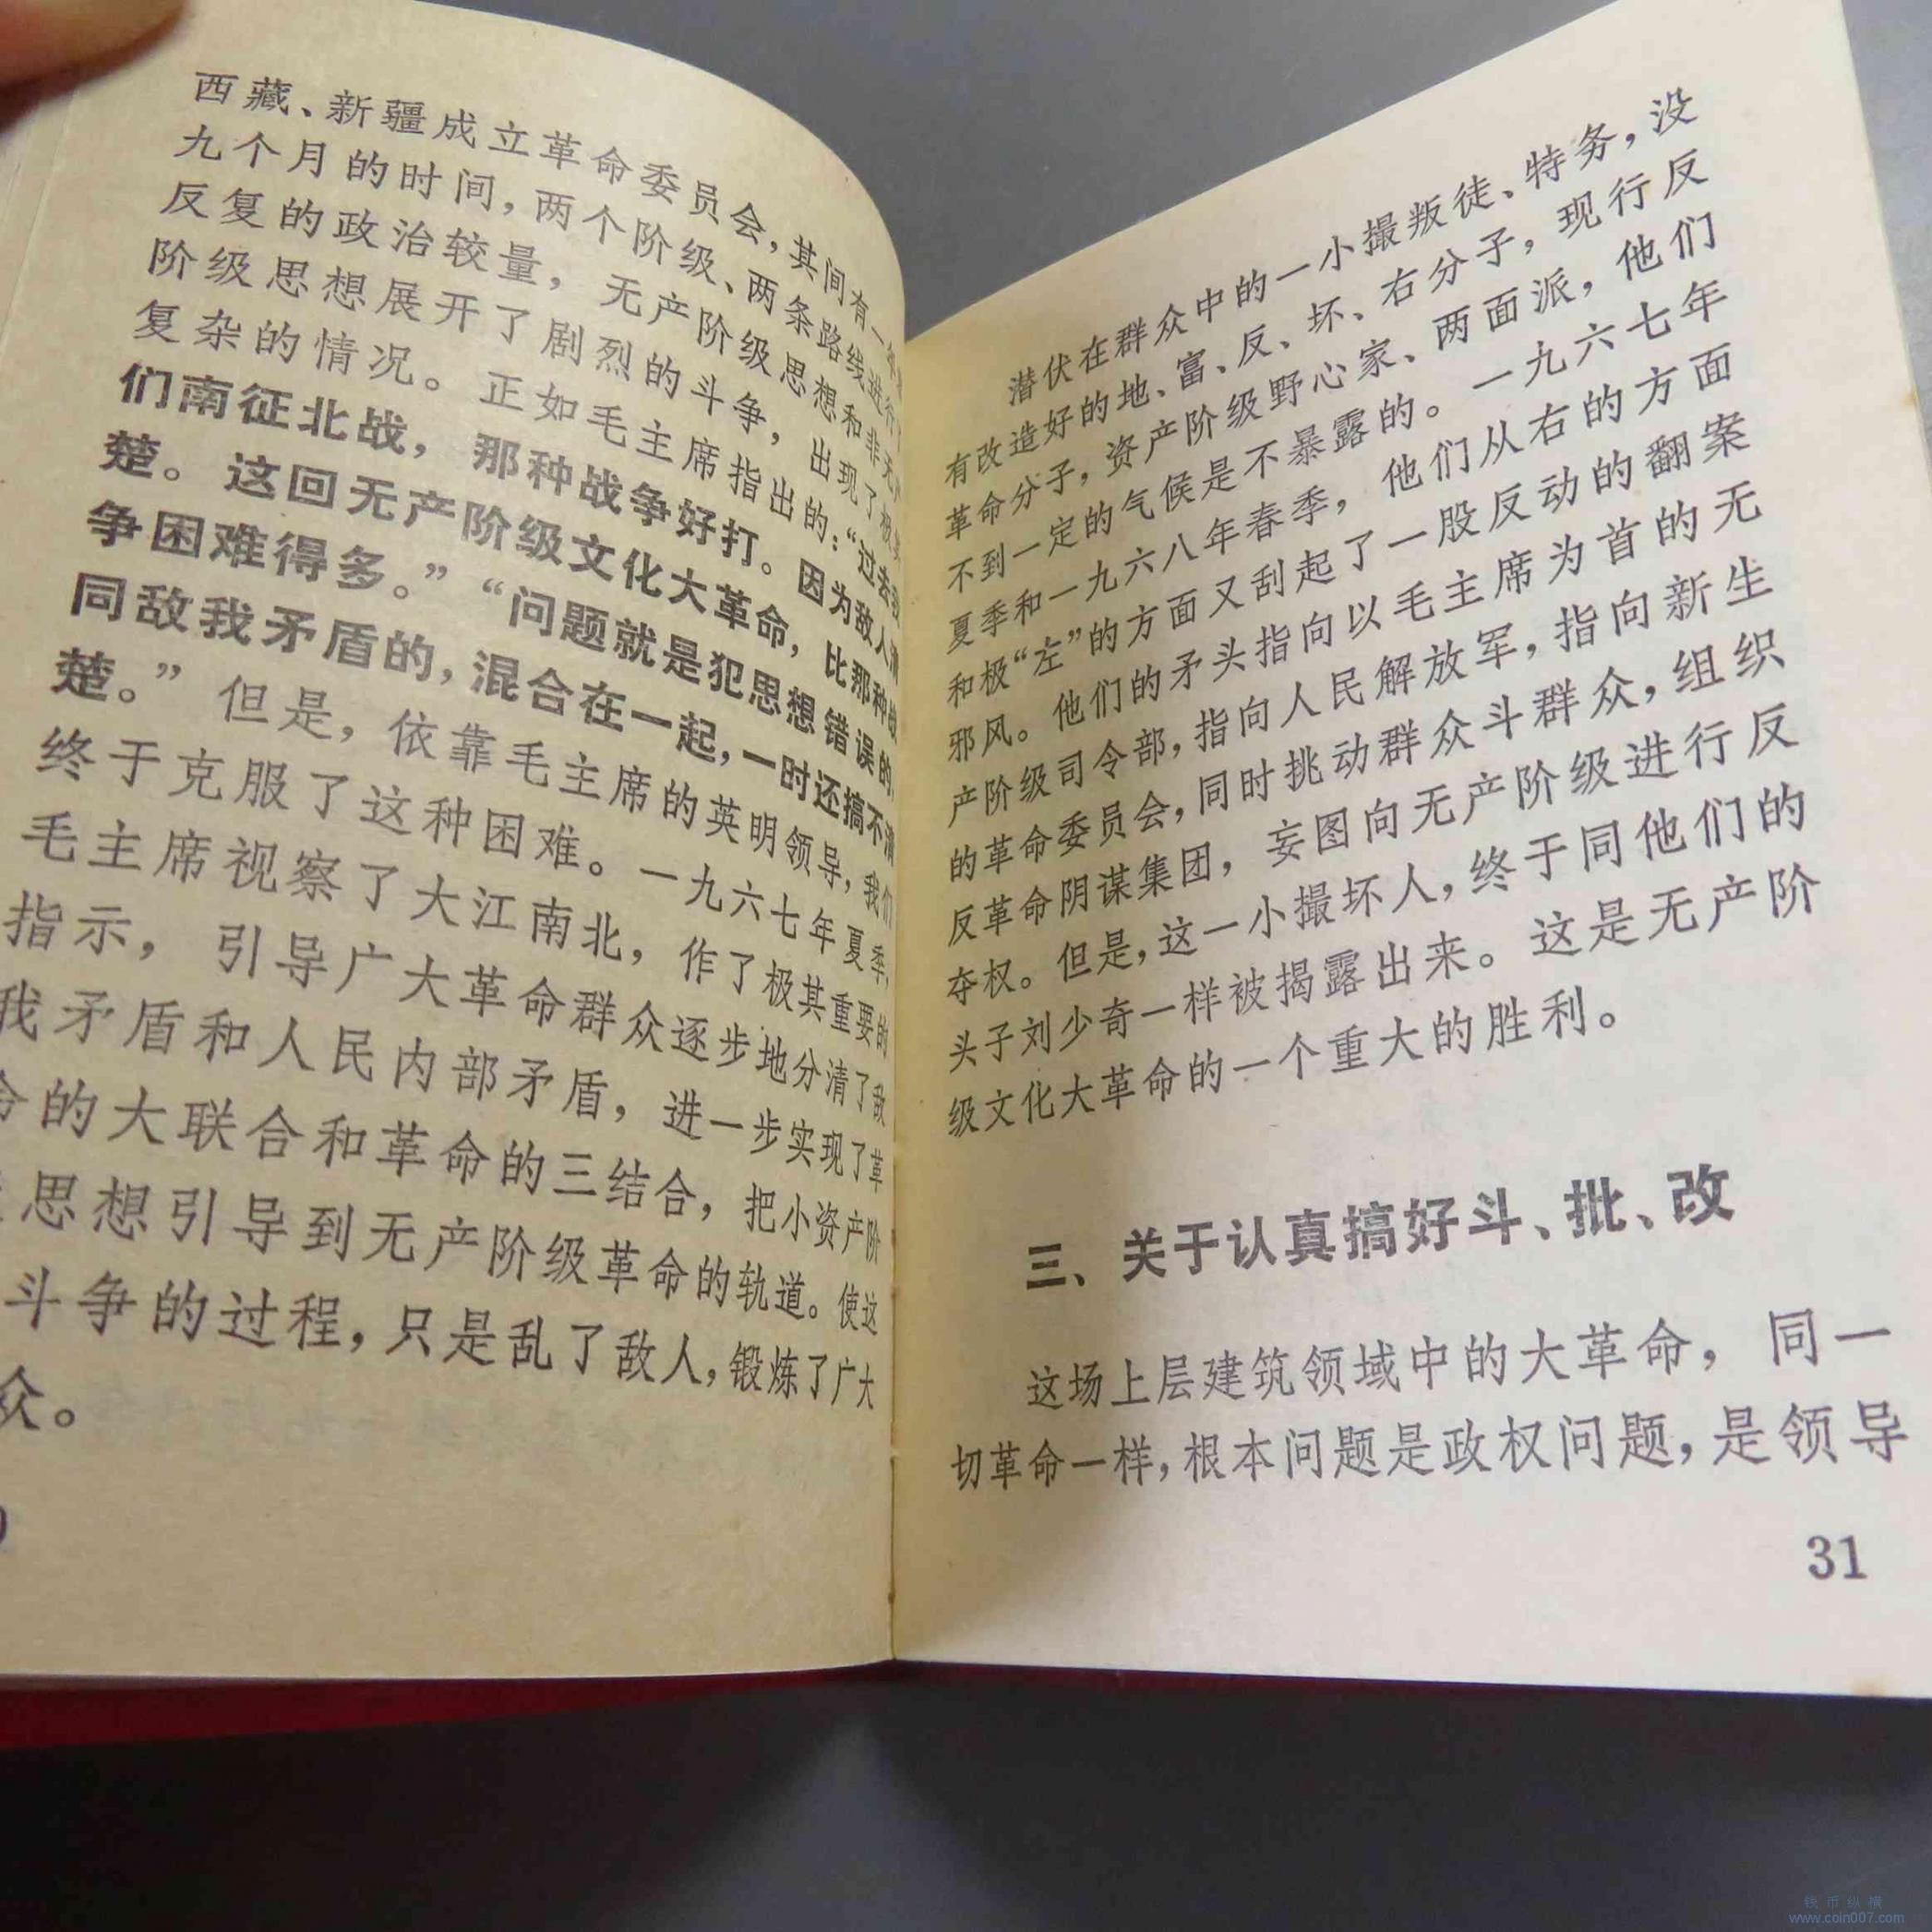 西藏、新疆成立革命委员会，其间有一年
九个月的时间，两个阶级、两条路线进行了
反复的政治较量，无产阶级思想和非无产
阶级思想展开了剧烈的斗争，出现了极其
复杂的情况。正如毛主席指出的：“过去我
们南征北战，那种战争好打。因为敌人清
楚。这回无产阶级文化大革命，比那种战
争困难得多。”“问题就是犯思想错误的，
同敌我矛盾的，混合在一起，一时还搞不清
楚。”但是，依靠毛主席的英明领导，我们
终于克服了这种困难。一九六七年夏季，
毛主席视察了大江南北，作了极其重要的
指示，引导广大革命群众逐步地分清了敌
我矛盾和人民内部矛盾，进一步实现了革
命的大联合和革命的三结合，把小资产阶
思想引导到无产阶级革命的轨道。使这
斗争的过程，只是乱了敌人，锻炼了广大
众。
潜伏在群众中的一小撮叛徒、特务，没
有改造好的地、富、反、坏、右分子，现行反
革命分子，资产阶级野心家、两面派，他们
不到一定的气候是不暴露的。一九六七年
夏季和一九六八年春季，他们从右的方面
和极“左”的方面又刮起了一股反动的翻案
邪风。他们的矛头指向以毛主席为首的无
产阶级司令部，指向人民解放军，指向新生
的革命委员会，同时挑动群众斗群众，组织
反革命阴谋集团，妄图向无产阶级进行反
夺权。但是，这一小撮坏人，终于同他们的
头子刘少奇一样被揭露出来。这是无产阶
级文化大革命的一个重大的胜利。
三、关于认真搞好斗、批、改
这场上层建筑领域中的大革命，同一
切革命一样，根本问题是政权问题，是领导
31
钱币纵横
www.coin007.com